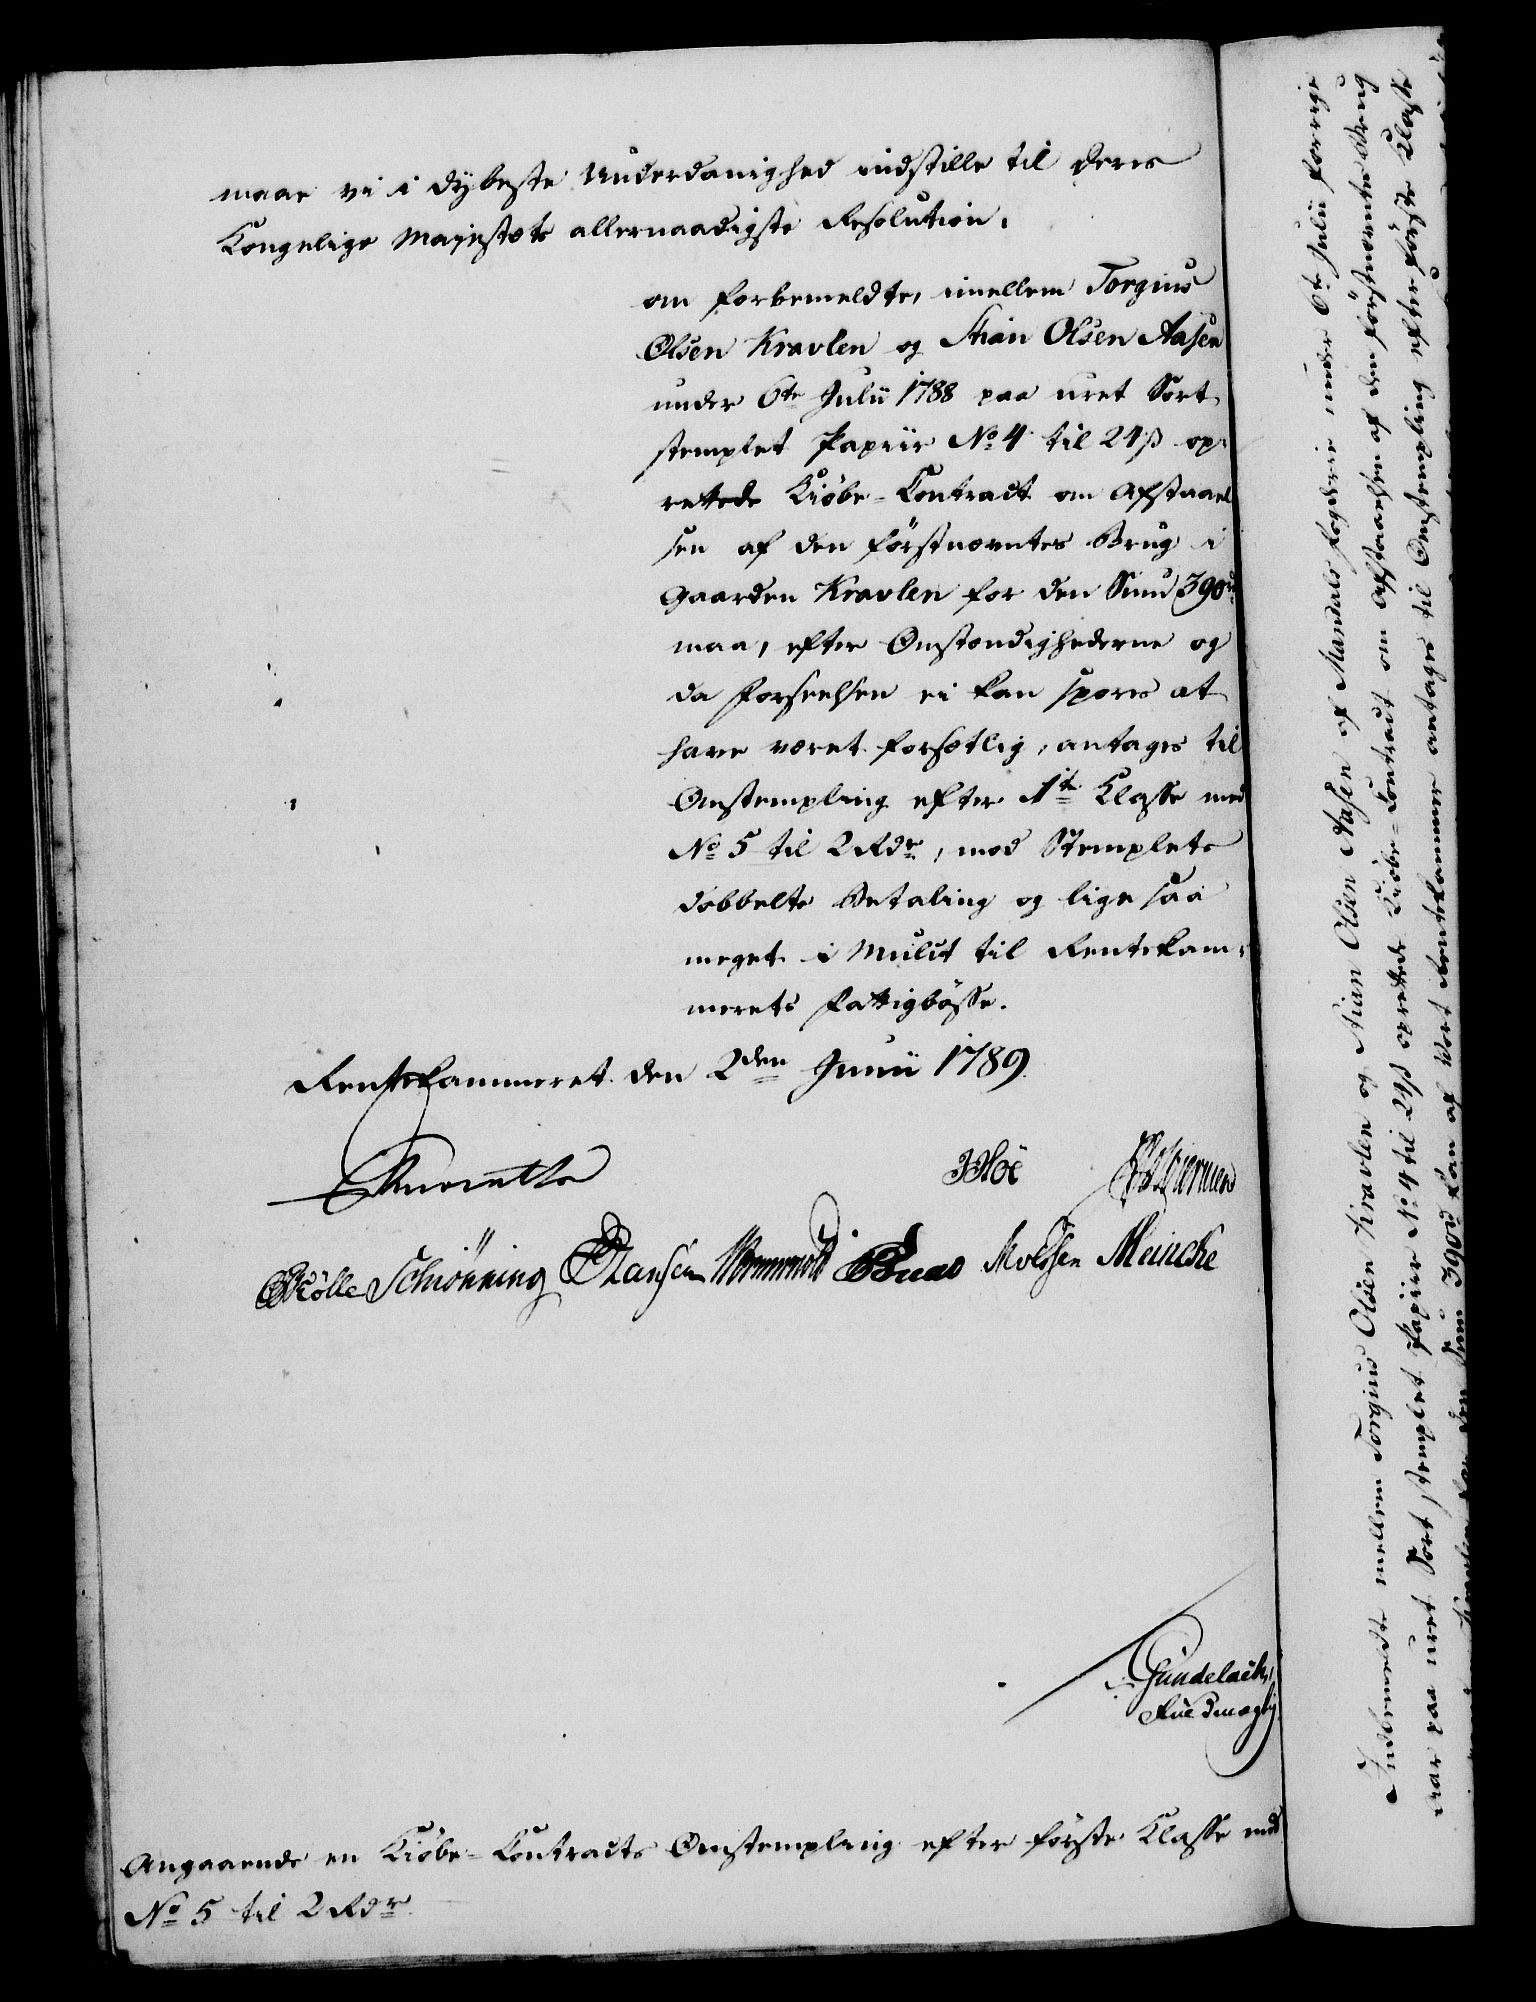 maae vi i dybeste Underdanighed indstille til Deres
Kongelige Majestæts allernaadigste Resolution,
om forbemeldte, imellem Torgius
Olsen Kravlen og Stian Olsen Aasen
under 6te Julii 1788 paa uret Sort
stemplet Papiir No 4 til 24 ß op-
rettede Kiöbe-Contract om Afstaael
sen af den förstnævntes Brug i
Gaarden Kravlen for den Sum 390rd
maa, efter Omstændighederne og
da Forseelsen ei kan spores at
have været forsætlig, antages til
Omstempling efter 1ste Klasse med
No 5 til 2 Rdr, mod Stemplets
dobbelte Betaling og lige saa
meget i Mulct til Rentekam-
merets Fattigbösse.
Rentekammeret den 2den Junii 1789.
Schiönning Hansen Wormwold Meincke
Gundelach,
Fuldmægtig
Angaaende en Kiöbe-Contracts Omstempling efter förste Klasse med
No 5 til 2 Rdr
Indbemeldte mellem Torgius Olsen Kravlen og Stian Olsen Aasen af Mandals Fogderie under 6te Julii forrige
Aar paa uret Sort stemplet Papiir No 4 til 24 ß oprettede Kiöbe-Contract om Afstaaelsen af den förstnævntes Brug
i Gaarden Kravlen for den Sum 390rd kan af Vort Rentekammer antages til Omstempling efter förste Klasse